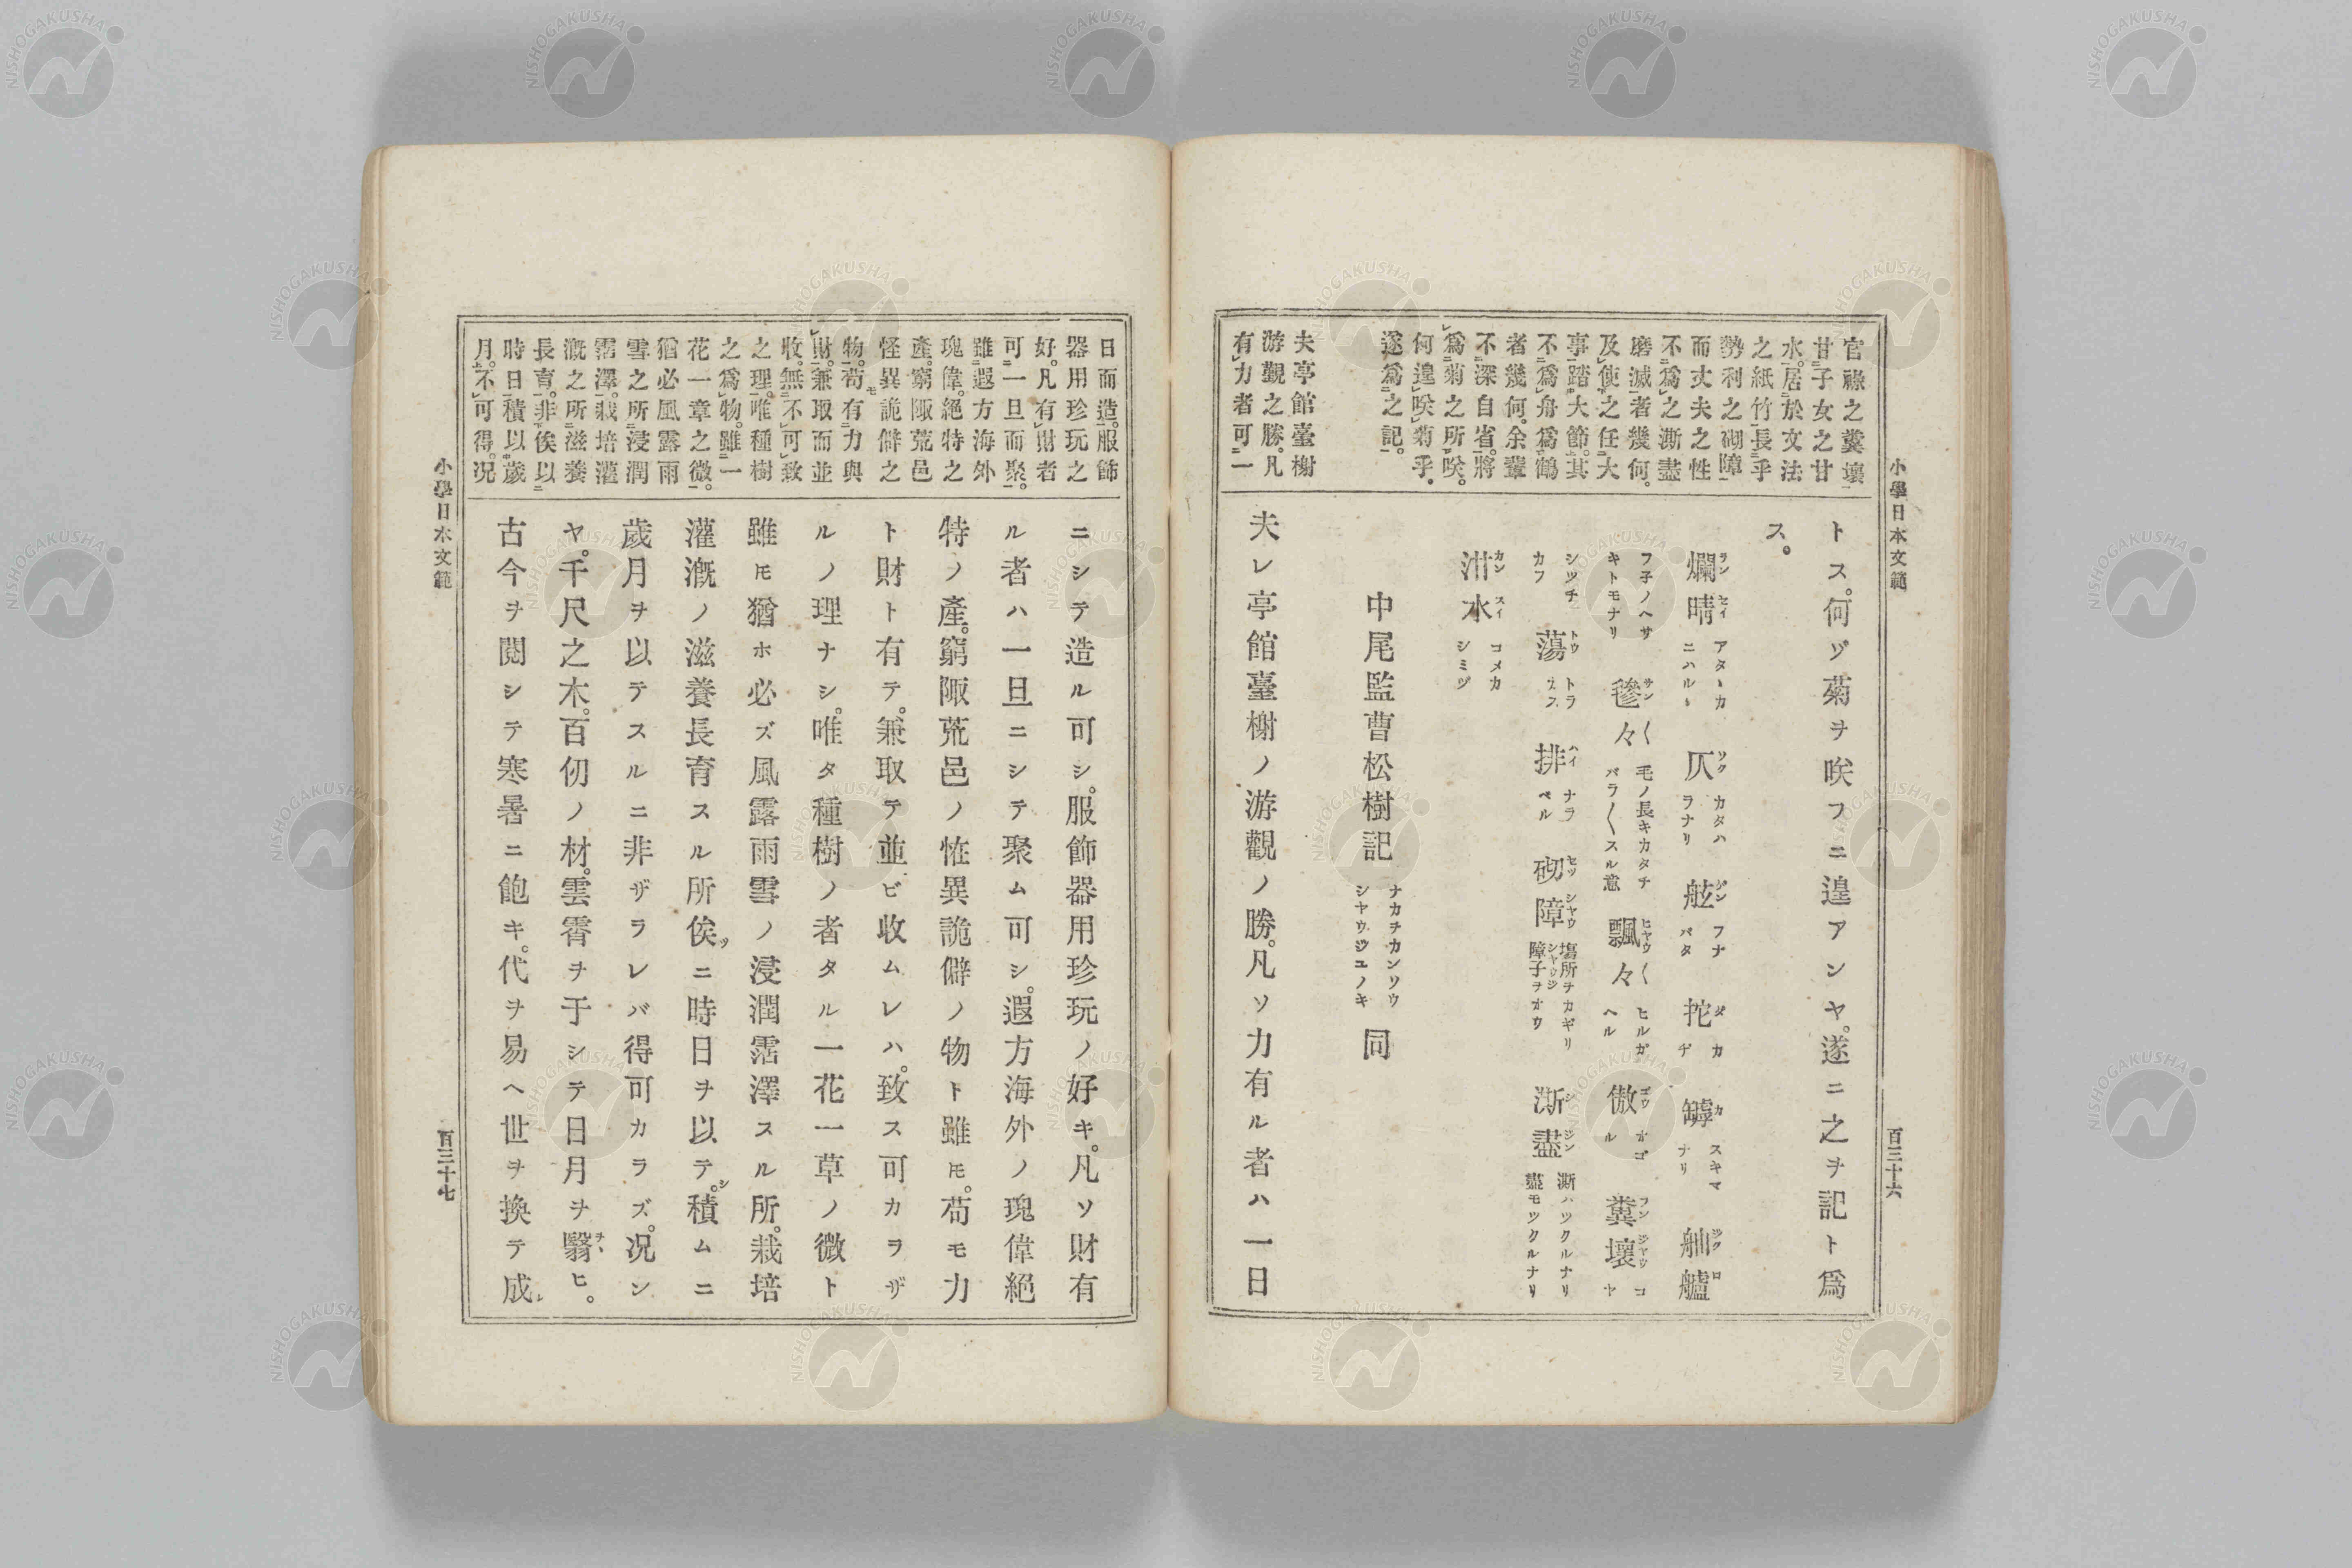 小學日本文範
百三十六
官祿之糞壤
甘子女之甘
水居於文法
之紙竹長乎
勢利之砌障
而丈夫之性
不爲之澌盡
磨滅者幾何。
及使之任大
事踏大節其
不爲舟爲鶴
者幾何。余輩
不深自省。將
爲菊之所唉。
何遑唉菊乎。
遂爲之記。
夫亭館臺榭
游觀之勝。凡
有力者可一
トス。何ゾ菊ヲ唉フニ遑アンヤ。遂ニ之ヲ記ト爲
ス。
爛晴 アタヽカニハルヽ 仄 カタハラナリ 舷 フナバタ 拕 カヂ 罅 スキマナリ 舳艫
フ子ノヘサキトモナリ 毿々 毛ノ長キカタチバラ〱スル意 飄々 ヒルガヘル 傲 オゴル 糞壤 コヤ
シツチカフ 蕩 トラカス 排 ナラベル 砌障 塲所ヲカギリ障子ヲオウ 澌盡 澌ハツクルナリ盡モツクルナリ
泔水 コメカシミヅ
中尾監曹松樹記 ナカヲカンソウシヤウジユノキ 同
夫レ亭館臺榭ノ游觀ノ勝。凡ソ力有ル者ハ一日
日而造。服飾
器用珍玩之
好。凡有財者
可一旦而聚。
雖遐方海外
瑰偉。絕特之
產。窮陬荒邑
怪異詭僻之
物。苟有力與
財。兼取而並
收。無不可致
之理。唯種樹
之爲物。雖一
花一章之微。
猶必風露雨
雪之所浸潤
霑澤。栽培灌
漑之所滋養
長育。非俟以
時日積以歲
月。不可得。况
ニシテ造ル可シ。服飾器用珍玩ノ好キ。凡ソ財有
ル者ハ一旦ニシテ聚ム可シ。遐方海外ノ瑰偉絕
特ノ產。窮陬荒邑ノ恠異詭僻ノ物ト雖モ。苟モ力
ト財ト有テ。兼取テ並ビ收ムレハ。致ス可カラザ
ルノ理ナシ。唯タ種樹ノ者タル一花一草ノ微ト
雖モ猶ホ必ズ風露雨雪ノ浸潤霑澤スル所。栽培
灌漑ノ滋養長育スル所俟ニ時日ヲ以テ。積ムニ
歲月ヲ以テスルニ非ザラレバ得可カラズ。况ン
ヤ。千尺之木。百仞ノ材。雲霄ヲ于シテ日月ヲ翳ヒ。
古今ヲ閱シテ寒暑ニ飽キ。代ヲ易ヘ世ヲ換テ成
小學日本文範
百三十七